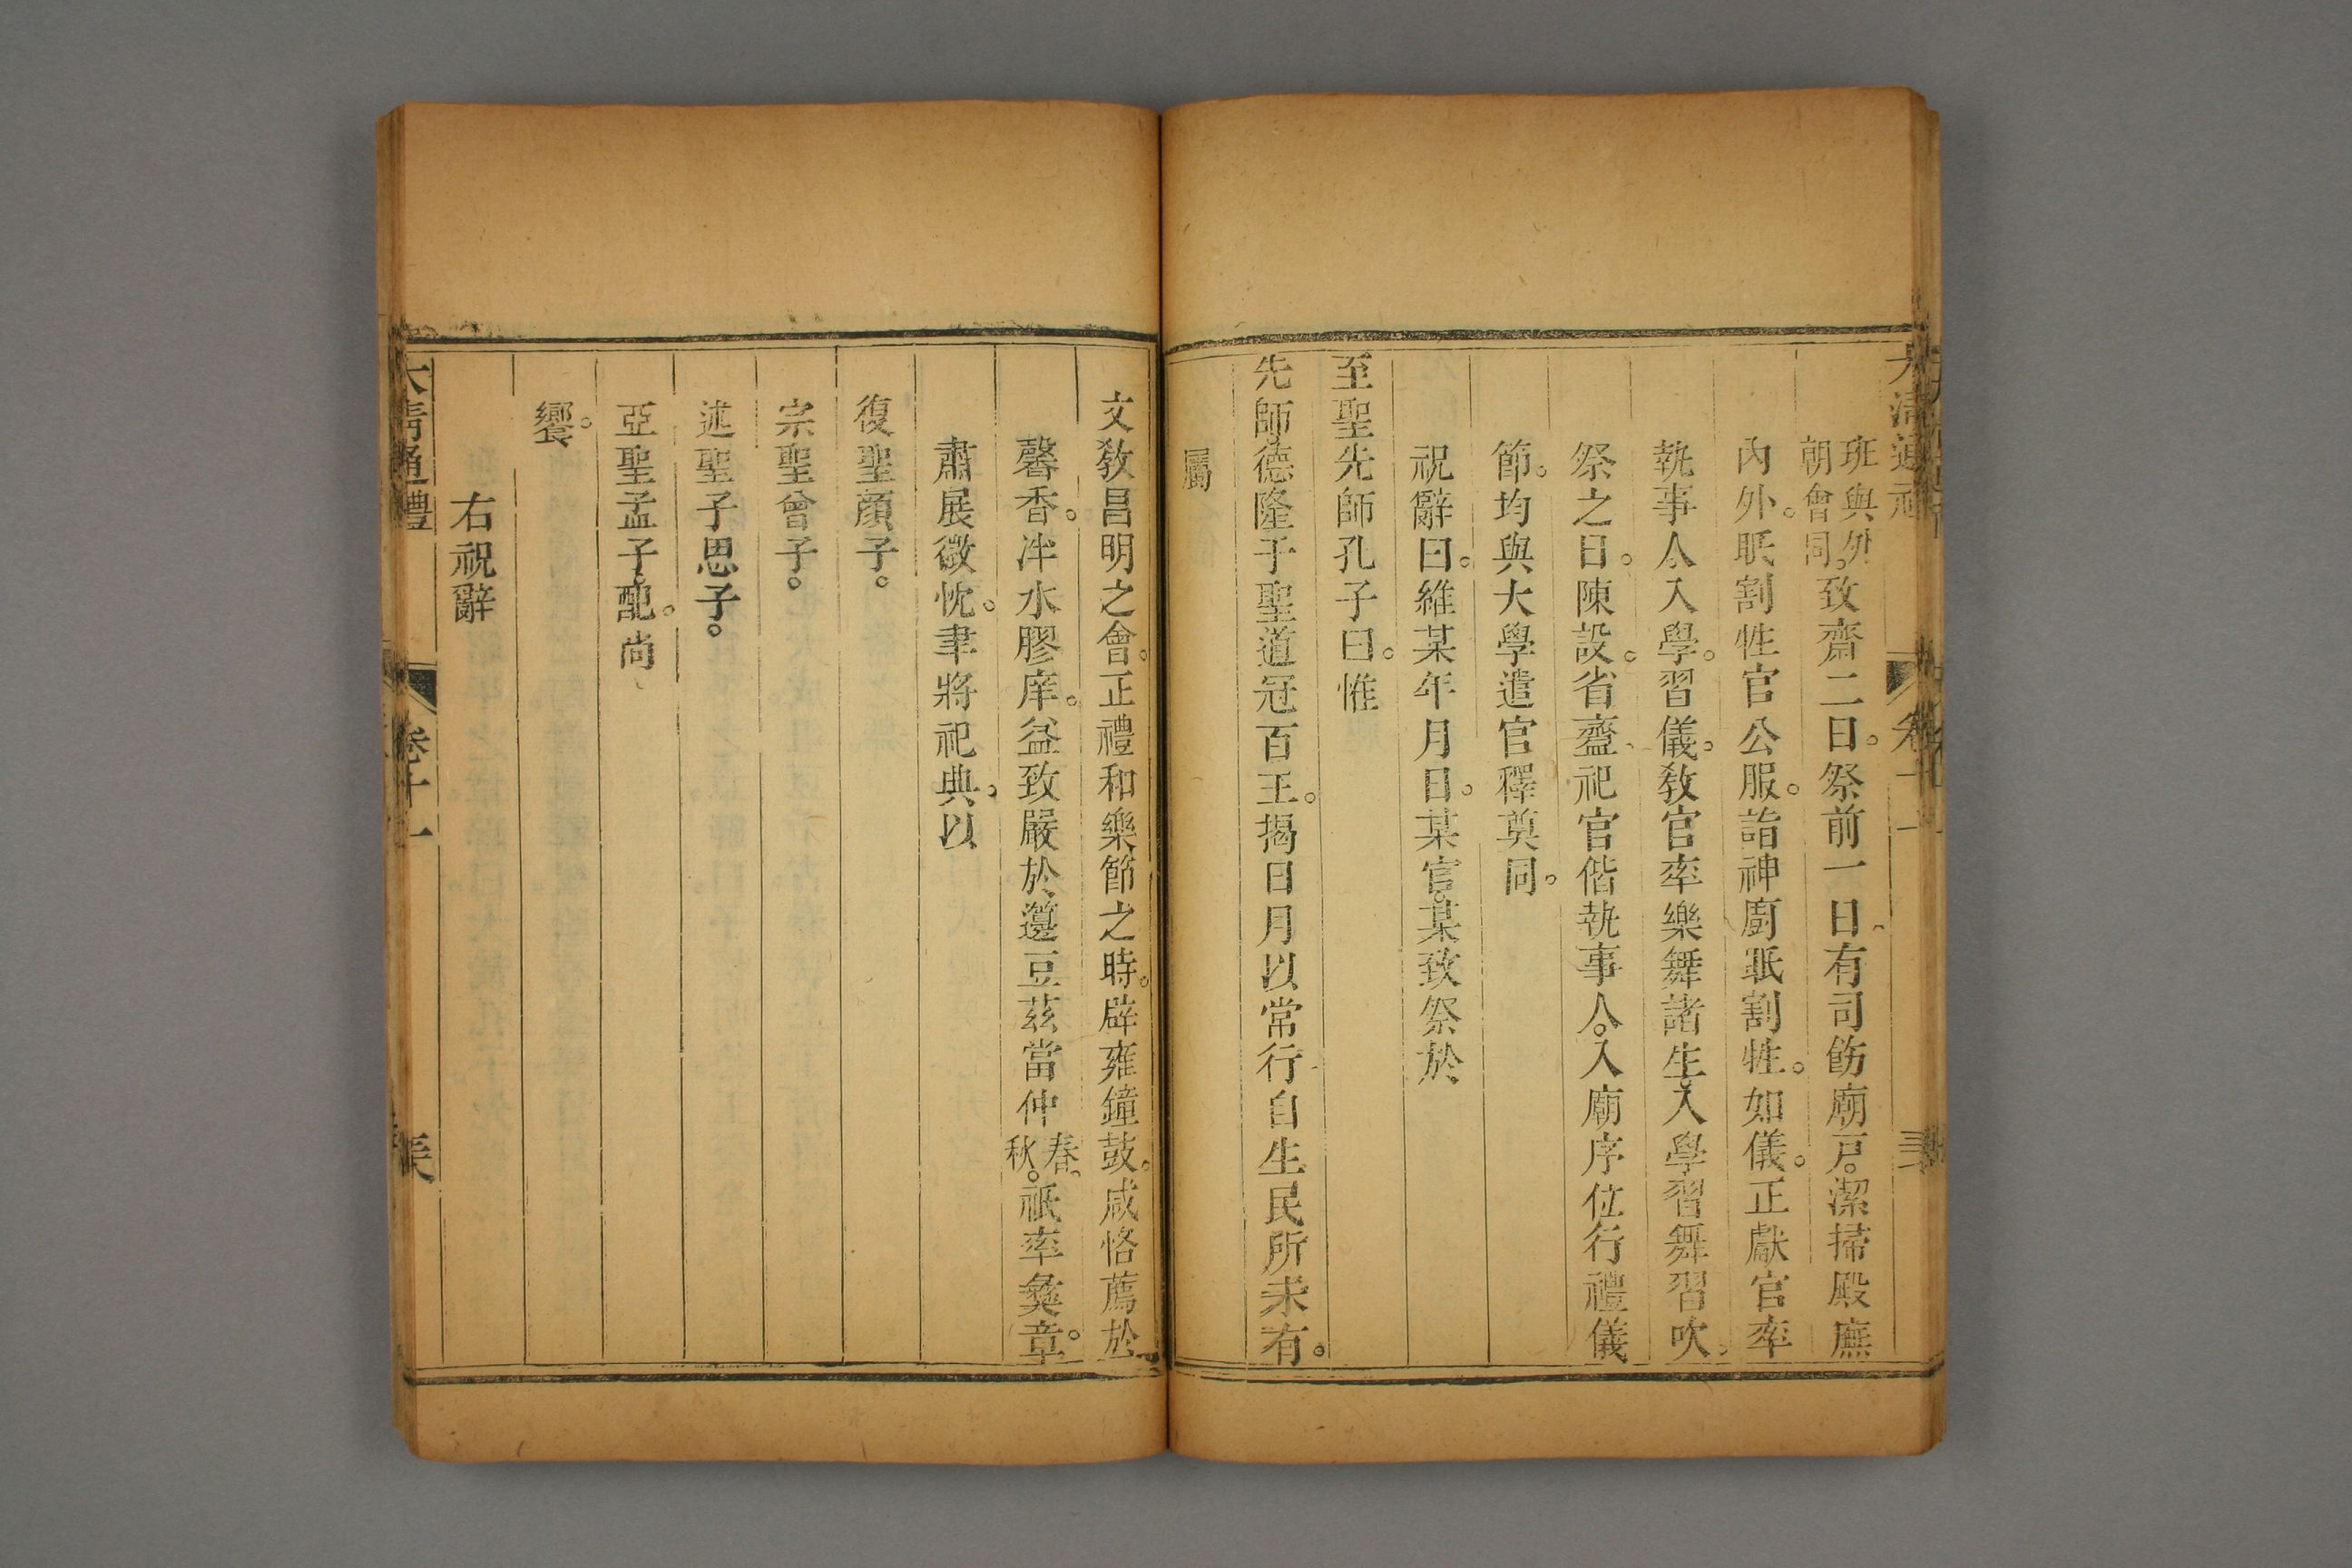 大清通禮 卷十一
班與外朝會同。致齋二日。祭前一日。有司飭廟戸。潔掃殿廡
內外。眂割牲官公服。詣神廚眂割牲。如儀。正獻官率
執事人入學。習儀。敎官率樂舞諸生。入學習舞習吹。
祭之日。陳設。省齍。祀官偕執事人。入廟序位行禮儀
節。均與大學遣官釋奠同。
祝辭曰。維某年月日。某官。某致祭於
至聖先師孔子曰。惟
先師德隆千聖道冠百王。揭日月以常行自生民所未有。
屬
文敎昌明之會。正禮和樂節之時。辟雍鐘鼓。咸恪薦於
馨香。泮水膠庠。益致嚴於籩豆茲當仲春。秋。祗率彝章。
肅展微忱。聿將祀典。以
復聖顏子。
宗聖曾子。
述聖子思子。
亞聖孟子。配。尚
饗。
右祝辭
大清通禮 卷十一